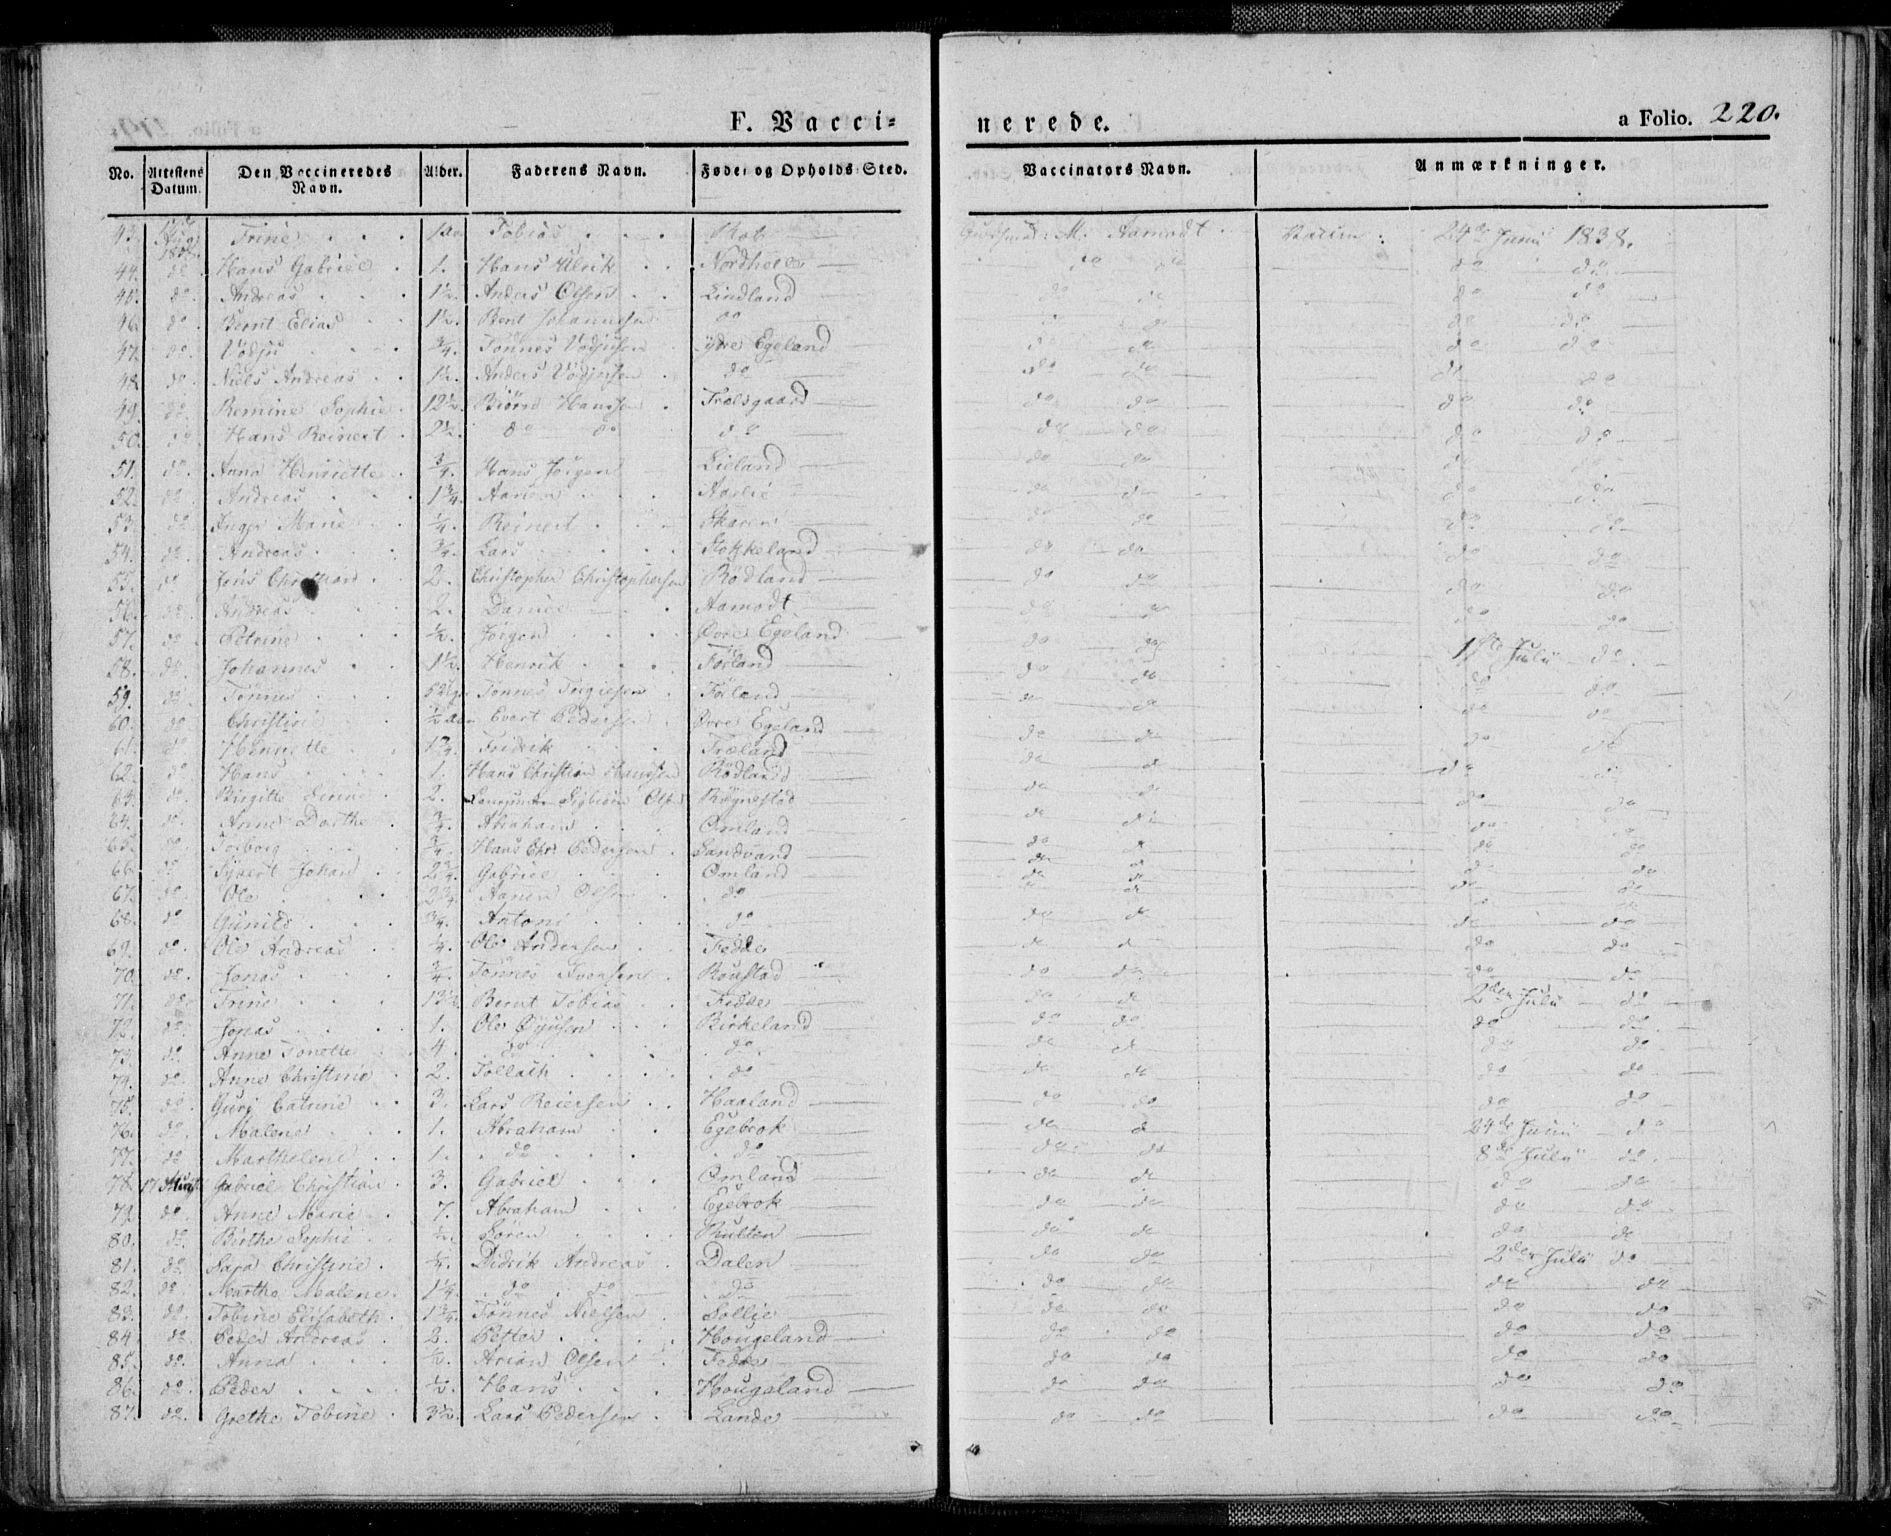 F. Vacci= nerede. a Folio. 220.
No. Attestens Datum. Den Vaccineredes Navn. Alder. Faderens Navn. Føde- og Opholds-Sted. Vaccinators Navn. Anmærkninger.
43. Aug Trine 1 Tobias M. Aamodt 24de Junii 1838.
44. do Hans Gabriel 1. Hans Ulrik Nordhelle do do do do
45. do Andreas 1½. Anders Olsen Lindland do do do do
46. do Bernt Elias 1½. Bent Johannesen do do do do do
47. do Vödju ¾. Tönnes Vödjusen ydre Egeland do do do do
48. do Niels Andreas 1½. Anders Vödjusen do do do do do
49. do Remine Sophie 12½. Biörn Hanssen Trælsgaard do do do do
50. do Hans Reinert 2½. do do do do do do do
51. do Anna Henriette ¾. Hans Jörgen Lieland do do do do
52. do Andreas 1¾. Aanen Aarlie do do do do
53. do Inger Marie ¼. Reinert Skaren do do do do
54. do Andreas ¾. Lars Stokkeland do do do do
55. do Jens Christian 2. Christopher Christophersen Rödland do do do do
56. do Andreas 2. Daniel Aamodt do do do do
57. do Petrine ½. Jörgen Övre Egeland do do
58. do Johannes 1½. Henrik Förland do do 1ste Julii do
59. do Tönnes Tönnes Förland do do do do
60. do Christine ½ Evert Pedersen Övre Egeland do do do do
61. do Henriette 1¾. Fridrik Træland do do do do
62. do Hans 1. Hans Christian Hanssen Rödland do do do do
63. do Birgitte Serine 2. Sigbiörn Olsen Röynestad do do do do
64. do Anne Dorthe ¾. Abraham Omland do do do do
65. do Torborg ¾. Hans Chr. Pedersen Sandvand do do do do
66. do Syvert Johan 2¾. Gabriel Omland do do do do
67. do Ole 2¾. Aanen Olsen do do do do do
68. do Gunild ¾. Antoni do do do do do
69. do Ole Andreas ¼. Ole Andersen Fedde do do do do
70. do Jonas ¾. Tönnes Ivensen Roustad do do do do
71. do Trine 13½. Bernt Tobias Fedde do do 2den Julii do
72. do Jonas 1. Ole Öyusen Birkeland do do do do
73. do Anne Tonette 4. do do do do do do
74. do Anne Christine 2. Tollach do do do do do
75. do Guri Catrine 3. Lars Reiersen Haaland do do do do
76. do Malene 1. Abraham Egebrok do do 24de Junii do
77. do Marthelene 1. do do do do 8de Julii do
78. 17 Gabriel Christian 3. Gabriel Omland do do do do
79. do Anne Marie 7. Abraham Egebrok do do do do
80. do Birthe Sophie ½. Sören Rulten do do do do
81. do Sara Christine ¼. Didrik Andreas Dalen do do 2den Julii do
82. do Marthe Malene 1¼. do do do do do do do
83. do Tobine Elisabeth 1¾. Tönnes Nielsen Sollie do do do do
84. do Peder Andreas 2. Petter Hougeland do do do do
85. do Anna ½. Arian Olsen Fedde do do do do
86. do Peder ½. Hans Hougaland do do do do
87. do Grethe Tobine 3½. Lars Pedersen Lande do do do do